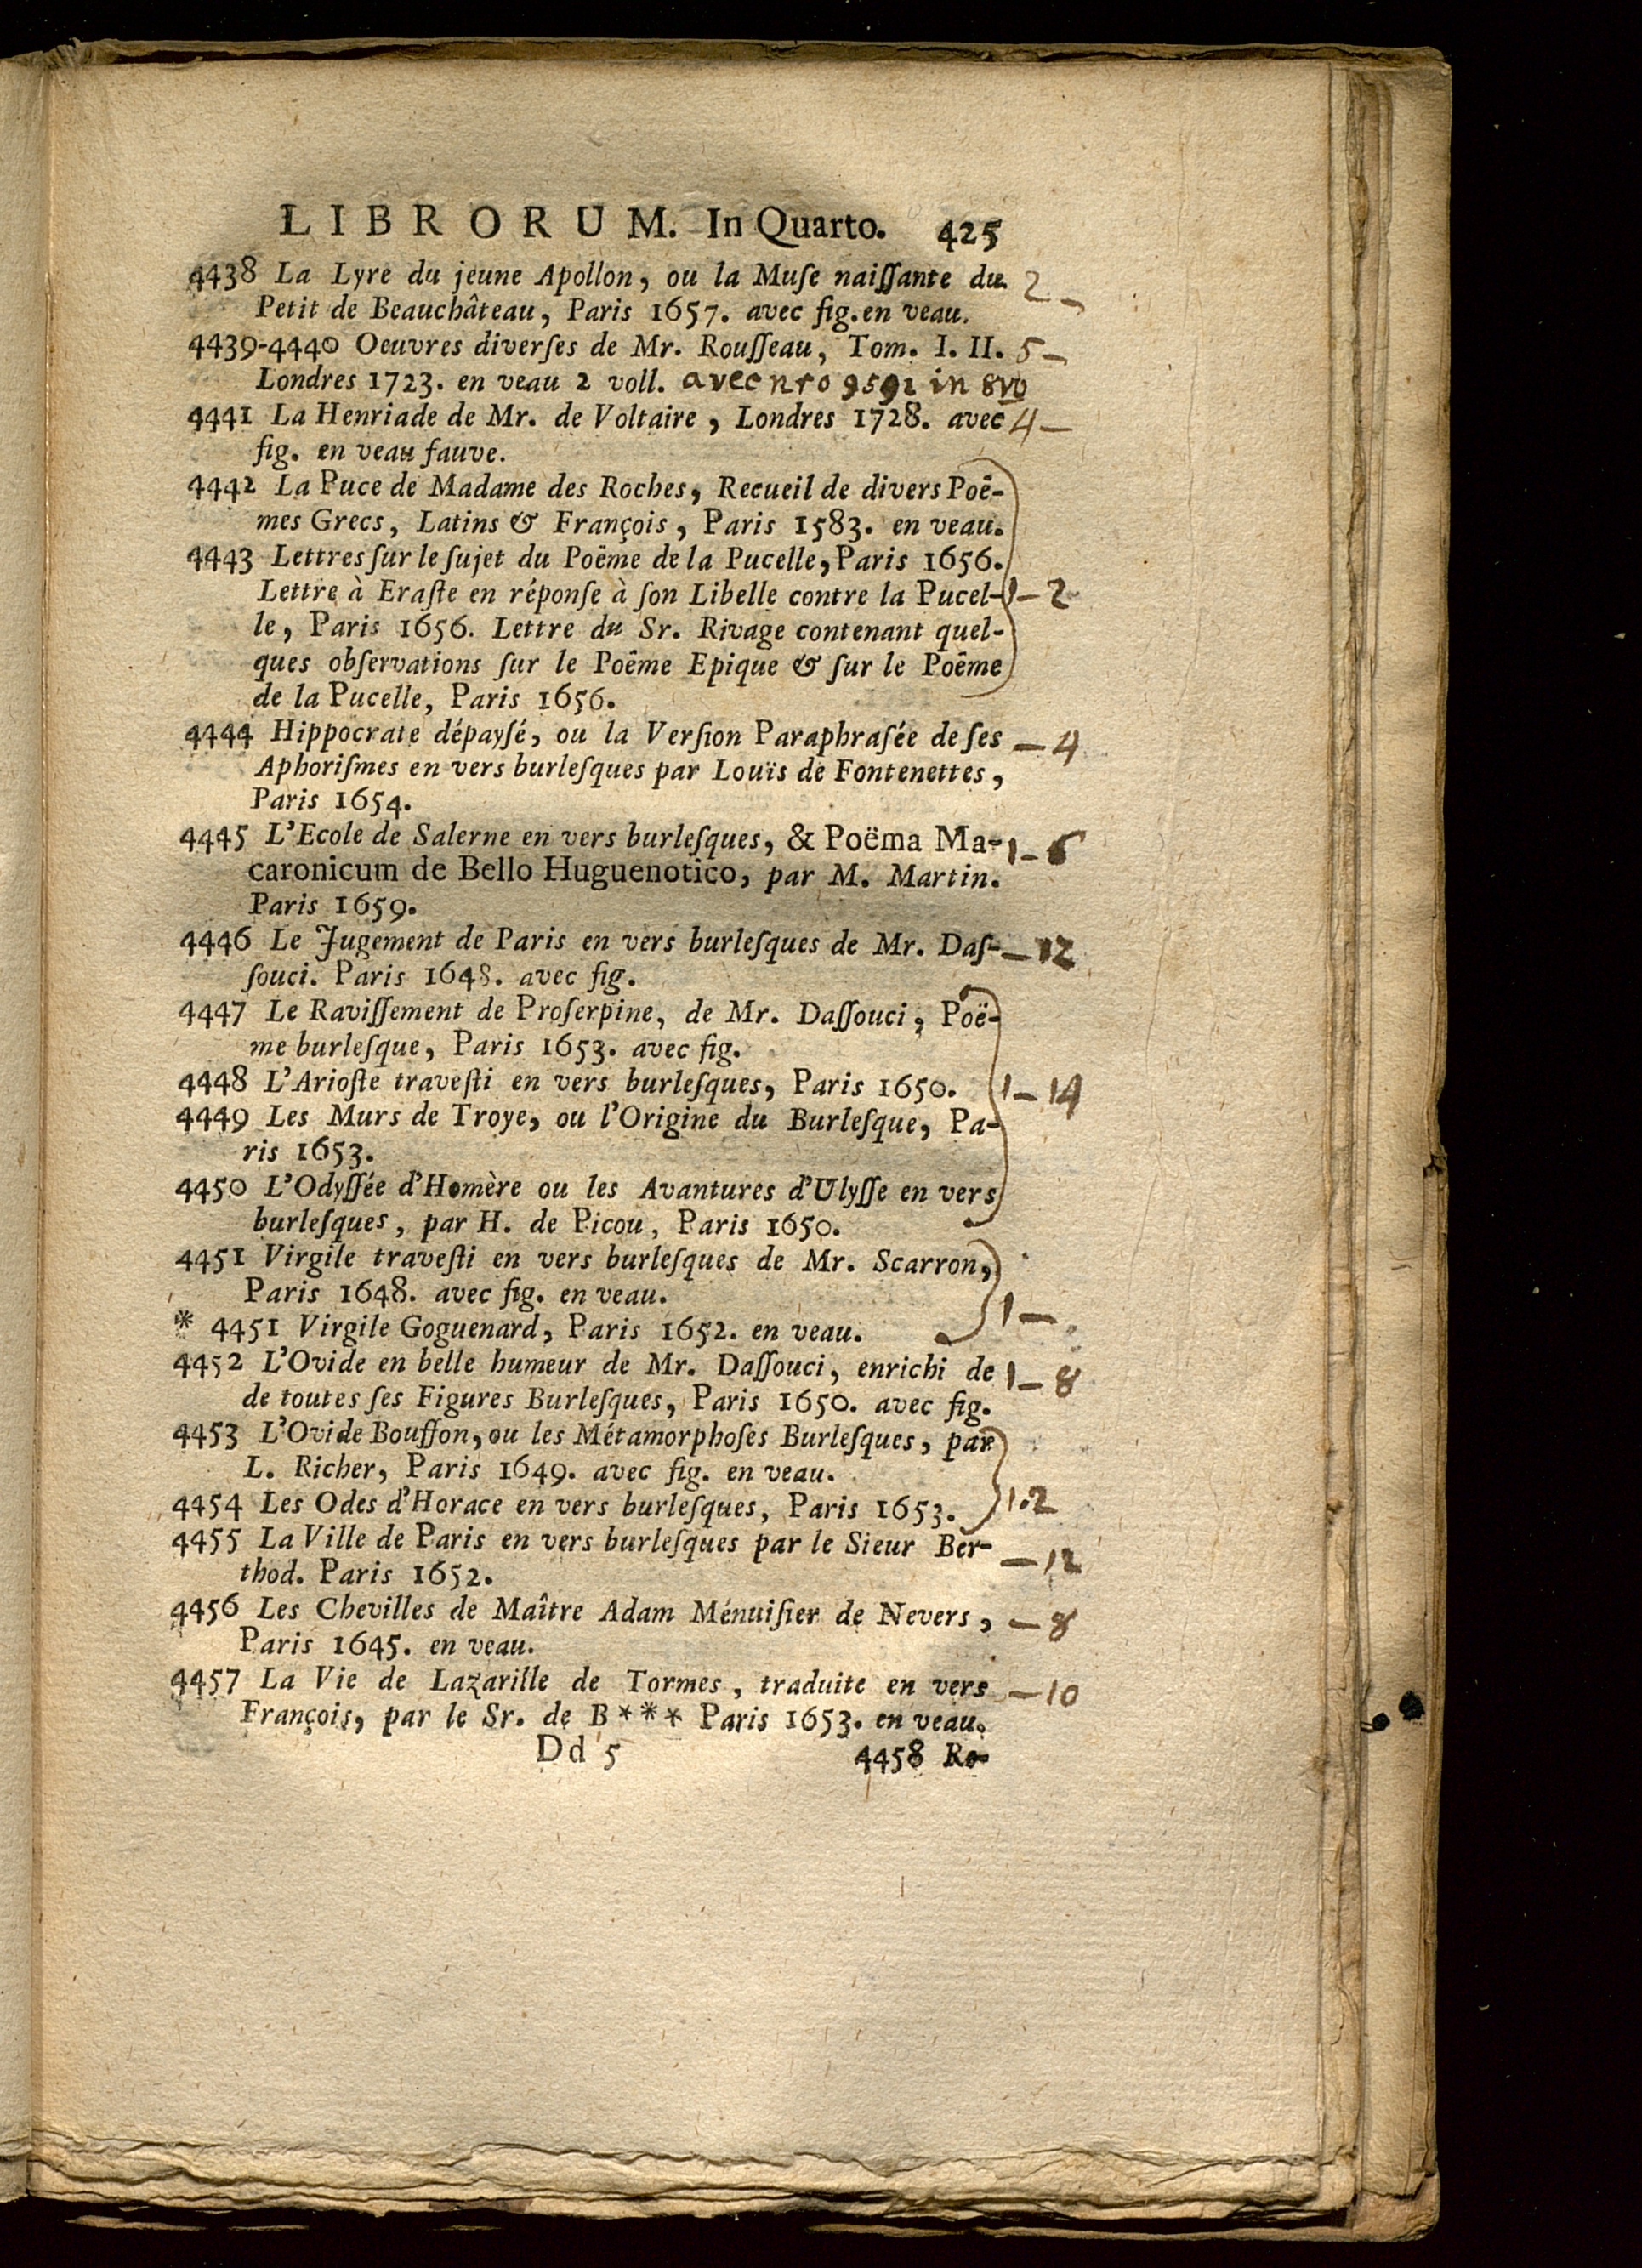 LIBRORUM. In Quarto. 425
4438 La Lyre du jeune Apollon, ou la Muſe naiſſante du 2 –
Petit de Beauchâteau, Paris 1657. avec fig. en veau.
4439-4440 Oeuvres diverſes de Mr. Rouſſeau, Tom. I. II. 5 –
Londres 1723. en veau 2 voll. avec nro 9592 in 8vo
4441 La Henriade de Mr. de Voltaire, Londres 1728. avec 4 –
fig. en veau fauve.
4442 La Puce de Madame des Roches, Recueil de divers Poë-
mes Grecs, Latins & François, Paris 1583. en veau.
4443 Lettres ſur le ſujet du Poëme de la Pucelle, Paris 1656.
Lettre à Eraſte en réponſe à ſon Libelle contre la Pucel- 1 – 2
le, Paris 1656. Lettre du Sr. Rivage contenant quel-
ques obſervations ſur le Poëme Epique & ſur le Poëme
de la Pucelle, Paris 1656.
4444 Hippocrate dépayſé, ou la Verſion Paraphraſée de ſes – 4
Aphoriſmes en vers burleſques par Louïs de Fontenettes,
Paris 1654.
4445 L'Ecole de Salerne en vers burleſques, & Poëma Ma- 1 – 6
caronicum de Bello Huguenotico, par M. Martin.
Paris 1659.
4446 Le Jugement de Paris en vers burleſques de Mr. Daſ- – 12
ſouci. Paris 1648. avec fig.
4447 Le Raviſſement de Proſerpine, de Mr. Daſſouci, Poë-
me burleſque, Paris 1653. avec fig.
4448 L'Arioſte traveſti en vers burleſques, Paris 1650. 1 – 14
4449 Les Murs de Troye, ou l'Origine du Burleſque, Pa-
ris 1653.
4450 L'Odyſſée d'Homère ou les Avantures d'Ulyſſe en vers
burleſques, par H. de Picou, Paris 1650.
4451 Virgile traveſti en vers burleſques de Mr. Scarron,
Paris 1648. avec fig. en veau.
* 4451 Virgile Goguenard, Paris 1652. en veau. 1 –
4452 L'Ovide en belle humeur de Mr. Daſſouci, enrichi de 1 – 8
de toutes ſes Figures Burleſques, Paris 1650. avec fig.
4453 L'Ovide Bouffon, ou les Métamorphoſes Burleſques, par
L. Richer, Paris 1649. avec fig. en veau.
4454 Les Odes d'Horace en vers burleſques, Paris 1653. 1.2
4455 La Ville de Paris en vers burleſques par le Sieur Ber- – 12
thod. Paris 1652.
4456 Les Chevilles de Maître Adam Ménuiſier de Nevers, – 8
Paris 1645. en veau.
4457 La Vie de Lazarille de Tormes, traduite en vers – 10
François, par le Sr. de B*** Paris 1653. en veau.
Dd 5 4458 Ro-